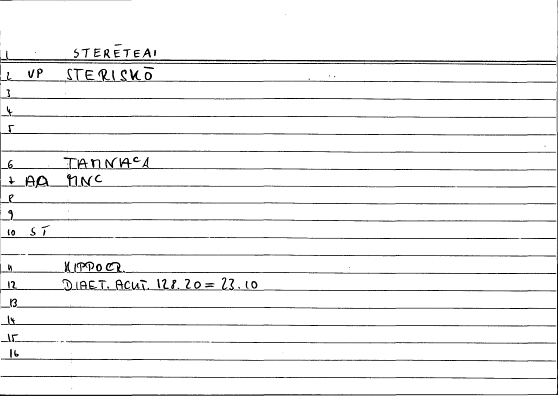 1 STERĒTEAI
2 VP STERISKŌ
3
4
5
6
7
8
9
10 ST
11 HIPPOCR.
12 DIAET. ACUT. 128.20 = 23.10
13
14
15
16